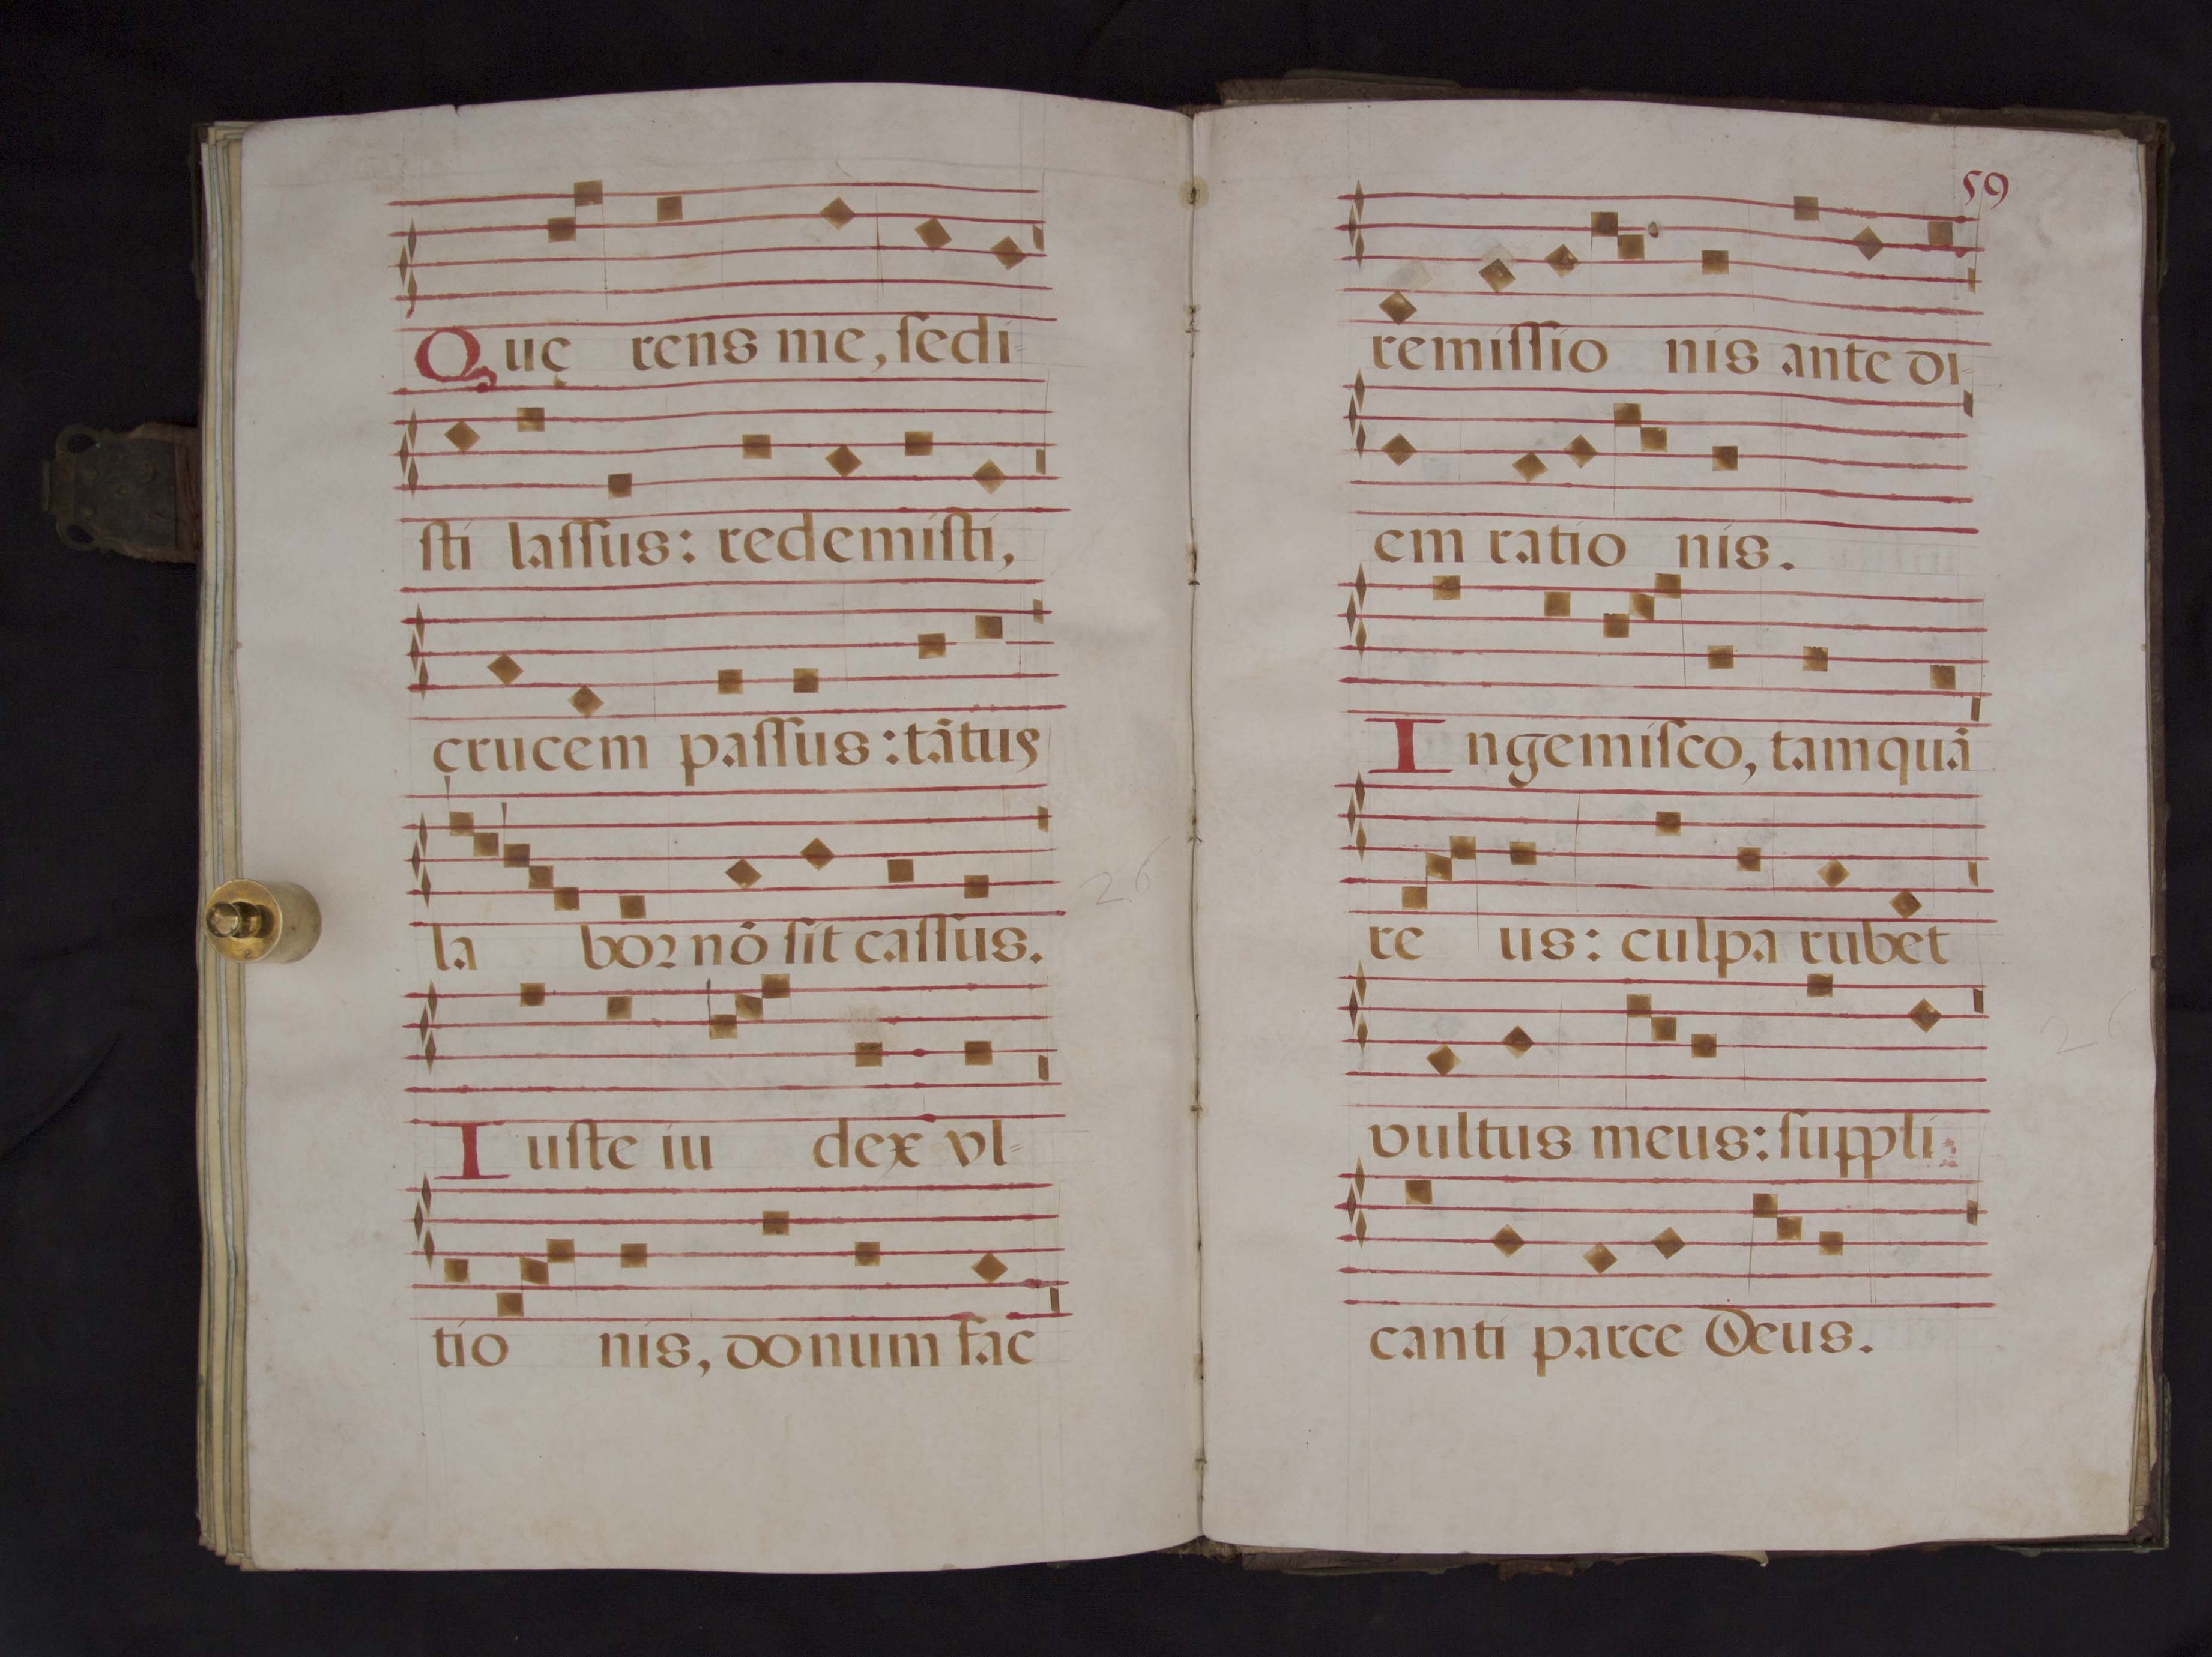 Quę rens me, ſedi-
ſti laſſus: redemiſti,
crucem paſſus: tãtus
la bor nõ ſit caſſus.
Iuſte iu dex vl-
tio nis, donum fac
59
remiſſio nis ante di-
em ratio nis.
Ingemiſco, tamquã
re us: culpa rubet
vultus meus: ſuppli-
canti parce Deus.
26
26